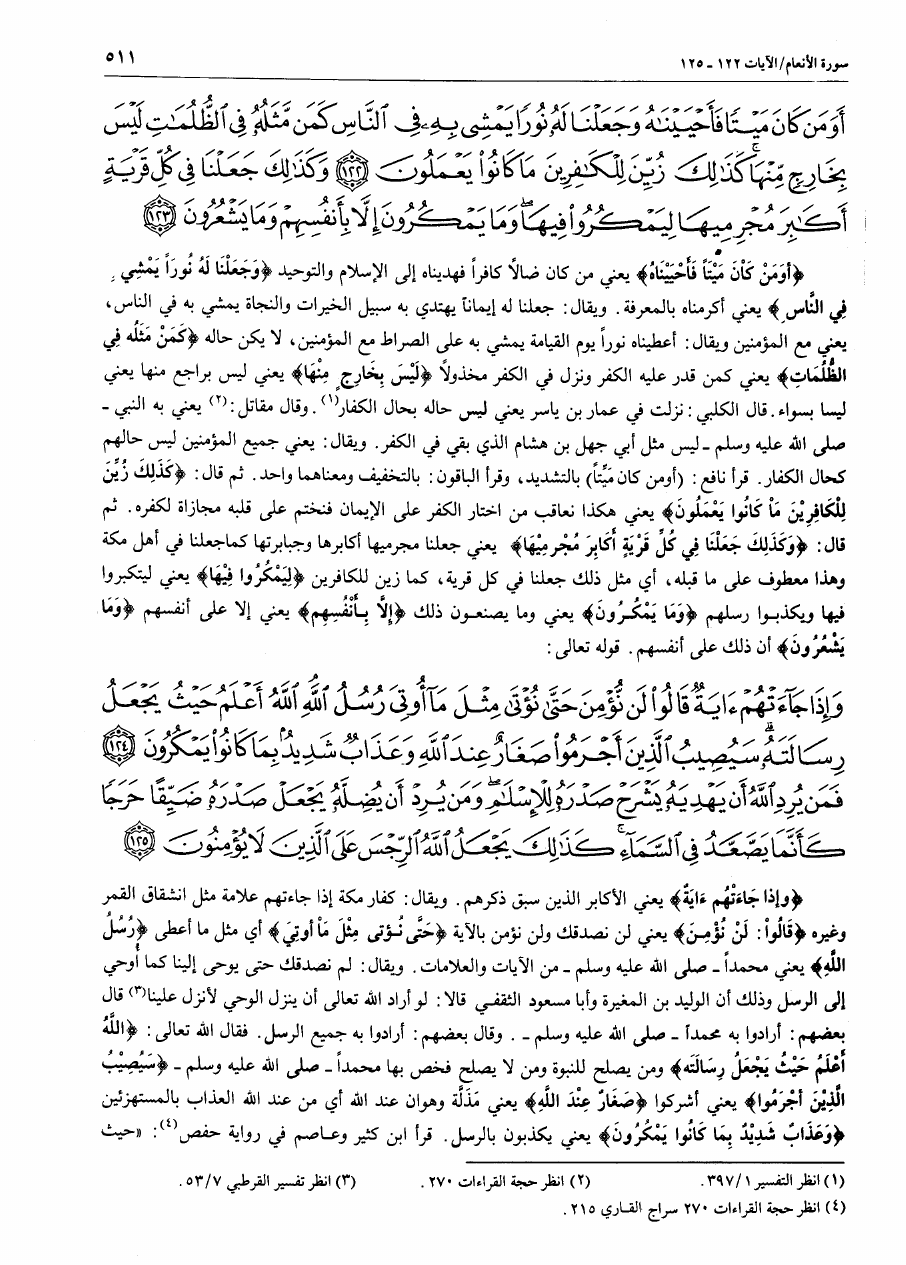 سورة الأنعام/الآيات ١٢٢ - ١٢٥ ٥١١
أَوَمَن كَانَ مَيْتًا فَأَحْيَيْنَاهُ وَجَعَلْنَا لَهُ نُورًا يَمْشِي بِهِ فِي النَّاسِ كَمَن مَّثَلُهُ فِي الظُّلُمَاتِ لَيْسَ
بِخَارِجٍ مِّنْهَا كَذَٰلِكَ زُيِّنَ لِلْكَافِرِينَ مَا كَانُوا يَعْمَلُونَ ﴿١٢٢﴾ وَكَذَٰلِكَ جَعَلْنَا فِي كُلِّ قَرْيَةٍ
أَكَابِرَ مُجْرِمِيهَا لِيَمْكُرُوا فِيهَا وَمَا يَمْكُرُونَ إِلَّا بِأَنفُسِهِمْ وَمَا يَشْعُرُونَ ﴿١٢٣﴾
﴿أَوَمَنْ كَانَ مَيْتاً فَأَحْيَيْنَاهُ﴾ يعني من كان ضالاً كافراً فهديناه إلى الإسلام والتوحيد ﴿وَجَعَلْنَا لَهُ نُوراً يَمْشِي
فِي النَّاسِ﴾ يعني أكرمناه بالمعرفة. ويقال: جعلنا له إيماناً يهتدي به سبيل الخيرات والنجاة يمشي به في الناس،
يعني مع المؤمنين ويقال: أعطيناه نوراً يوم القيامة يمشي به على الصراط مع المؤمنين، لا يكن حاله ﴿كَمَنْ مَثَلُه فِي
الظُّلُمَاتِ﴾ يعني كمن قدر عليه الكفر ونزل في الكفر مخذولاً ﴿لَيْسَ بِخَارِجٍ مِنْهَا﴾ يعني ليس براجع منها يعني
ليسا بسواء. قال الكلبي: نزلت في عمار بن ياسر يعني ليس حاله بحال الكفار(١). وقال مقاتل:(٢) يعني به النبي -
صلى الله عليه وسلم - ليس مثل أبي جهل بن هشام الذي بقي في الكفر. ويقال: يعني جميع المؤمنين ليس حالهم
كحال الكفار. قرأ نافع: (أومن كان مَيِّتاً) بالتشديد، وقرأ الباقون: بالتخفيف ومعناهما واحد. ثم قال: ﴿كَذَلِكَ زُيِّنَ
لِلْكَافِرِيْنَ مَاْ كَانُوا يَعْمَلُونَ﴾ يعني هكذا نعاقب من اختار الكفر على الإيمان فنختم على قلبه مجازاة لكفره. ثم
قال: ﴿وَكَذَلِكَ جَعَلْنَا فِي كُلِّ قَرْيَةٍ أَكَابِرَ مُجْرِمِيْهَا﴾ يعني جعلنا مجرميها أكابرها وجبابرتها كماجعلنا في أهل مكة
وهذا معطوف على ما قبله، أي مثل ذلك جعلنا في كل قرية، كما زين للكافرين ﴿لِيَمْكُرُوا فِيْهَا﴾ يعني ليتكبروا
فيها ويكذبوا رسلهم ﴿وَمَا يَمْكُرُونَ﴾ يعني وما يصنعون ذلك ﴿إِلَّا بِأَنْفُسِهِم﴾ يعني إلا على أنفسهم ﴿وَمَا
يَشْعُرُونَ﴾ أن ذلك على أنفسهم. قوله تعالى:
وَإِذَا جَاءَتْهُمْ ءَايَةٌ قَالُوا لَن نُّؤْمِنَ حَتَّىٰ نُؤْتَىٰ مِثْلَ مَا أُوتِيَ رُسُلُ اللَّهِ اللَّهُ أَعْلَمُ حَيْثُ يَجْعَلُ
رِسَالَتَهُ سَيُصِيبُ الَّذِينَ أَجْرَمُوا صَغَارٌ عِندَ اللَّهِ وَعَذَابٌ شَدِيدٌ بِمَا كَانُوا يَمْكُرُونَ ﴿١٢٤﴾
فَمَن يُرِدِ اللَّهُ أَن يَهْدِيَهُ يَشْرَحْ صَدْرَهُ لِلْإِسْلَامِ وَمَن يُرِدْ أَن يُضِلَّهُ يَجْعَلْ صَدْرَهُ ضَيِّقًا حَرَجًا
كَأَنَّمَا يَصَّعَّدُ فِي السَّمَاءِ كَذَٰلِكَ يَجْعَلُ اللَّهُ الرِّجْسَ عَلَى الَّذِينَ لَا يُؤْمِنُونَ ﴿١٢٥﴾
﴿وإذا جَاءَتْهُم ءَايَةٌ﴾ يعني الأكابر الذين سبق ذكرهم. ويقال: كفار مكة إذا جاءتهم علامة مثل انشقاق القمر
وغيره ﴿قَالُواْ: لَنْ نُؤْمِنَ﴾ يعني لن نصدقك ولن نؤمن بالآية ﴿حَتَّى نُؤتى مِثْلَ مَاْ أوتِيَ﴾ أي مثل ما أعطى ﴿رُسُلُ
اللَّهِ﴾ يعني محمداً - صلى الله عليه وسلم - من الآيات والعلامات. ويقال: لم نصدقك حتى يوحى إلينا كما أوحي
إلى الرسل وذلك أن الوليد بن المغيرة وأبا مسعود الثقفي قالا: لو أراد الله تعالى أن ينزل الوحي لأنزل علينا(٣) قال
بعضهم: أرادوا به محمداً - صلى الله عليه وسلم -. وقال بعضهم: أرادوا به جميع الرسل. فقال الله تعالى: ﴿اللَّهُ
أَعْلَمُ حَيْثُ يَجْعَلُ رِسَالَتَه﴾ ومن يصلح للنبوة ومن لا يصلح فخص بها محمداً - صلى الله عليه وسلم - ﴿سَيُصِيْبُ
الَّذِيْنَ أَجْرَمُوا﴾ يعني أشركوا ﴿صَغَارٌ عِنْدَ اللَّهِ﴾ يعني مَذَلَّة وهوان عند الله أي من عند الله العذاب بالمستهزئين
﴿وَعَذَابٌ شَدِيْدٌ بِمَا كَانُوا يَمْكُرُونَ﴾ يعني يكذبون بالرسل. قرأ ابن كثير وعاصم في رواية حفص(٤): «حيث
(١) انظر التفسير ٣٩٧/١. (٢) انظر حجة القراءات ٢٧٠. (٣) انظر تفسير القرطبي ٥٣/٧.
(٤) انظر حجة القراءات ٢٧٠ سراج القاري ٢١٥.